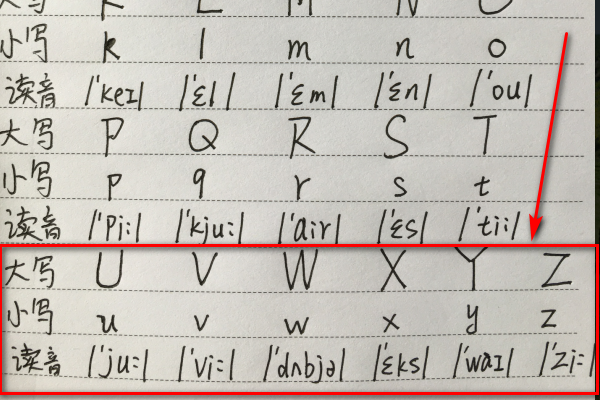 大写 K L M N O
小写 k l m n o
读音 /ˈkeɪ/ /ˈɛl/ /ˈɛm/ /ˈɛn/ /ˈou/
大写 P Q R S T
小写 p q r s t
读音 /ˈPj:/ /ˈkju:/ /ˈair/ /ˈɛs/ /ˈtii:/
大写 U V W X Y Z
小写 u v w x y z
读音 /ˈju:/ /ˈvi:/ /ˈdʌbjə/ /ˈɛks/ /ˈwaɪ/ /ˈzi:/